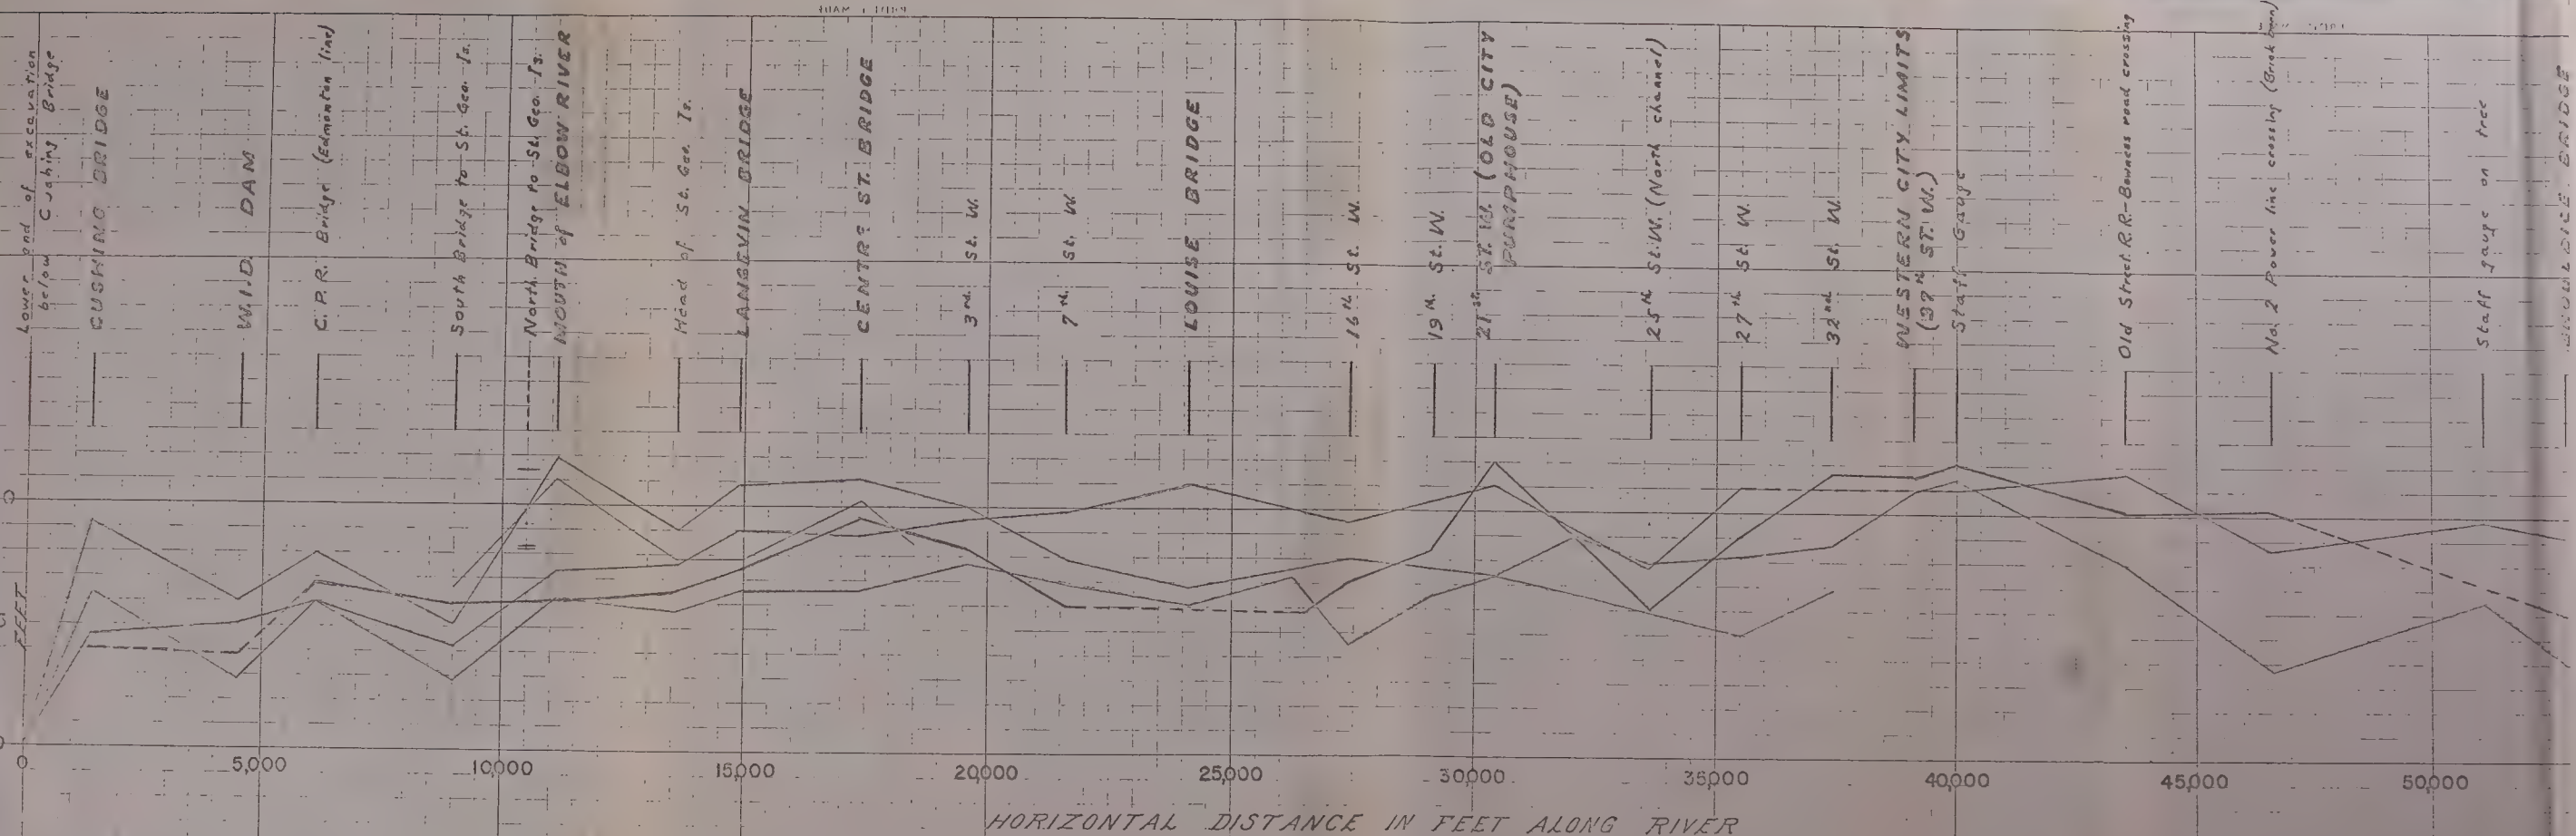 Lower end of excavation
below Cushing Bridge
CUSHING BRIDGE
W.I.D. DAM
C.P.R. Bridge (Edmonton line)
South Bridge to St. Geo. Is.
North Bridge to St. Geo. Is.
MOUTH of ELBOW RIVER
Head of St. Geo. Is.
LANGEVIN BRIDGE
CENTRE ST. BRIDGE
3rd. St. W.
7th. St. W.
LOUISE BRIDGE
16th. St. W.
19th. St. W.
21st. ST. W. (OLD CITY
PUMPHOUSE)
25th St. W. (North channel)
27th St. W.
32nd St. W.
WESTERN CITY LIMITS
(37TH ST. W.)
Staff Gauge
Old Street R.R.-Bowness road crossing
No. 2 Power line crossing
Staff gauge on tree
BRIDGE
0
FEET
0 5,000 10,000 15,000 20,000 25,000 30,000 35,000 40,000 45,000 50,000
HORIZONTAL DISTANCE IN FEET ALONG RIVER